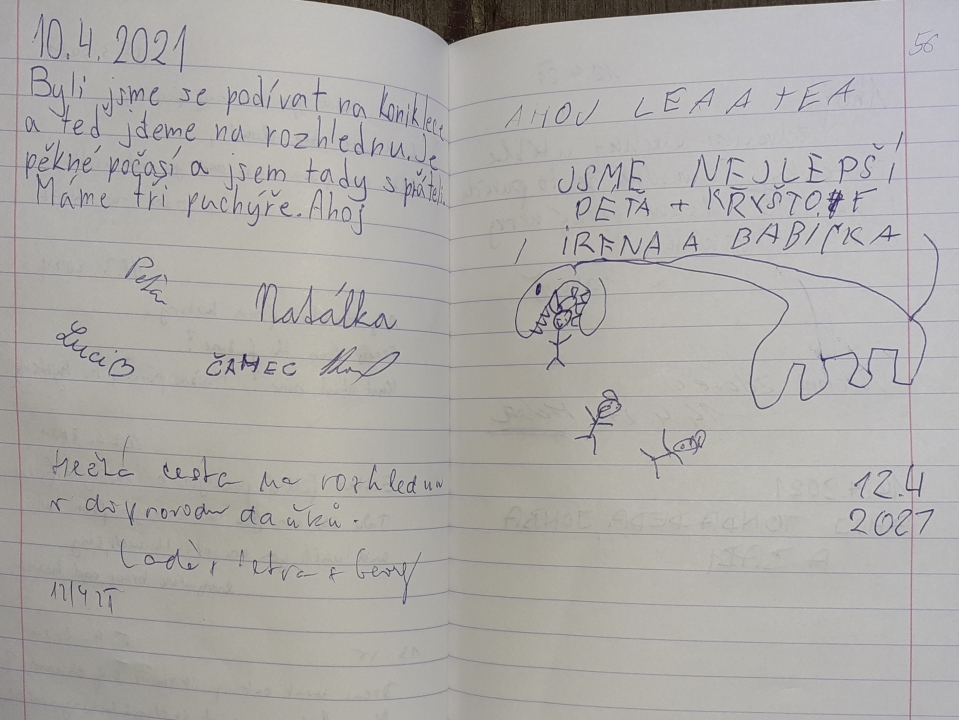 10.4.2021
Byli jsme se podívat na koniklece
a teď jdeme na rozhlednu. Je
pěkné počasí a jsem tady s přáteli.
Máme tři puchýře. Ahoj
Petra
Natálka
Lucie B
ČAMEC
Hezká cesta na rozhlednu
12/4 21
56
AHOJ LEA A TEA
JSME NEJLEPŠÍ
PÉŤA + KRYŠTOF
I IRENA A BABIČKA
12.4
2021